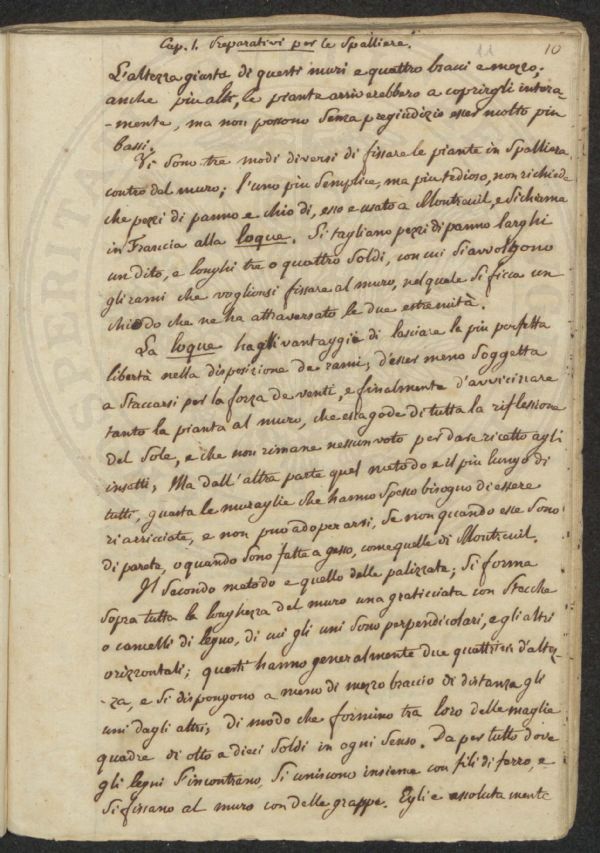 Cap. 1. Preparativi per le Spalliere.
11
10
L'altezza giusta di questi muri e quattro bracci e mezzo;
anche piu alti, le piante arriverebbero a coprirgli intera-
-mente, ma non possono senza pregiudizio esser molto piu
bassi.
Vi sono tre modi diversi di fissare le piante in Spalliera
contro del muro; l'uno piu semplice, ma piu tedioso, non richiede
che pezzi di panno e chiodi, esso e usato a Montreuil, e si chiama
in Francia alla loque. Si tagliano pezzi di panno larghi
un dito, e longhi tre o quattro Soldi, con cui si avvolgono
gli rami che voglionsi fissare al muro, nel quale si ficca un
chiodo che ne ha attraversato le due estremità.
La loque ha gli vantaggi di lasciare la piu perfetta
libertà nella disposizione de rami; d'esser meno soggetta
a staccarsi per la forza de venti, e finalmente d'avvicinare
tanto la pianta al muro, che essa gode di tutta la riflessione
del Sole, e che non rimane nessun voto per dare ricetto agli
insetti; Ma dall'altra parte quel metodo e il piu lungo di
tutti, guasta le muraglie che hanno spesso bisogno di essere
riarricciate, e non puo adoperarsi, se non quando esse sono
di parete, o quando sono fatte a gesso, come quelle di Montreuil.
Il secondo metodo e quello delle palizzate; si forma
sopra tutta la longhezza del muro una graticciata con stecche
o cannelli di legno, di cui gli uni sono perpendicolari, e gli altri
orizzontali; questi hanno generalmente due quattrini d'altez-
-za, e si dispongono a meno di mezzo braccio di distanza gli
uni dagli altri, di modo che formino tra loro delle maglie
quadre di otto a dieci Soldi in ogni senso. Da per tutto dove
gli legni s'incontrano, si uniscono insieme con fili di ferro, e
si fissano al muro con delle grappe. Egli e assolutamente